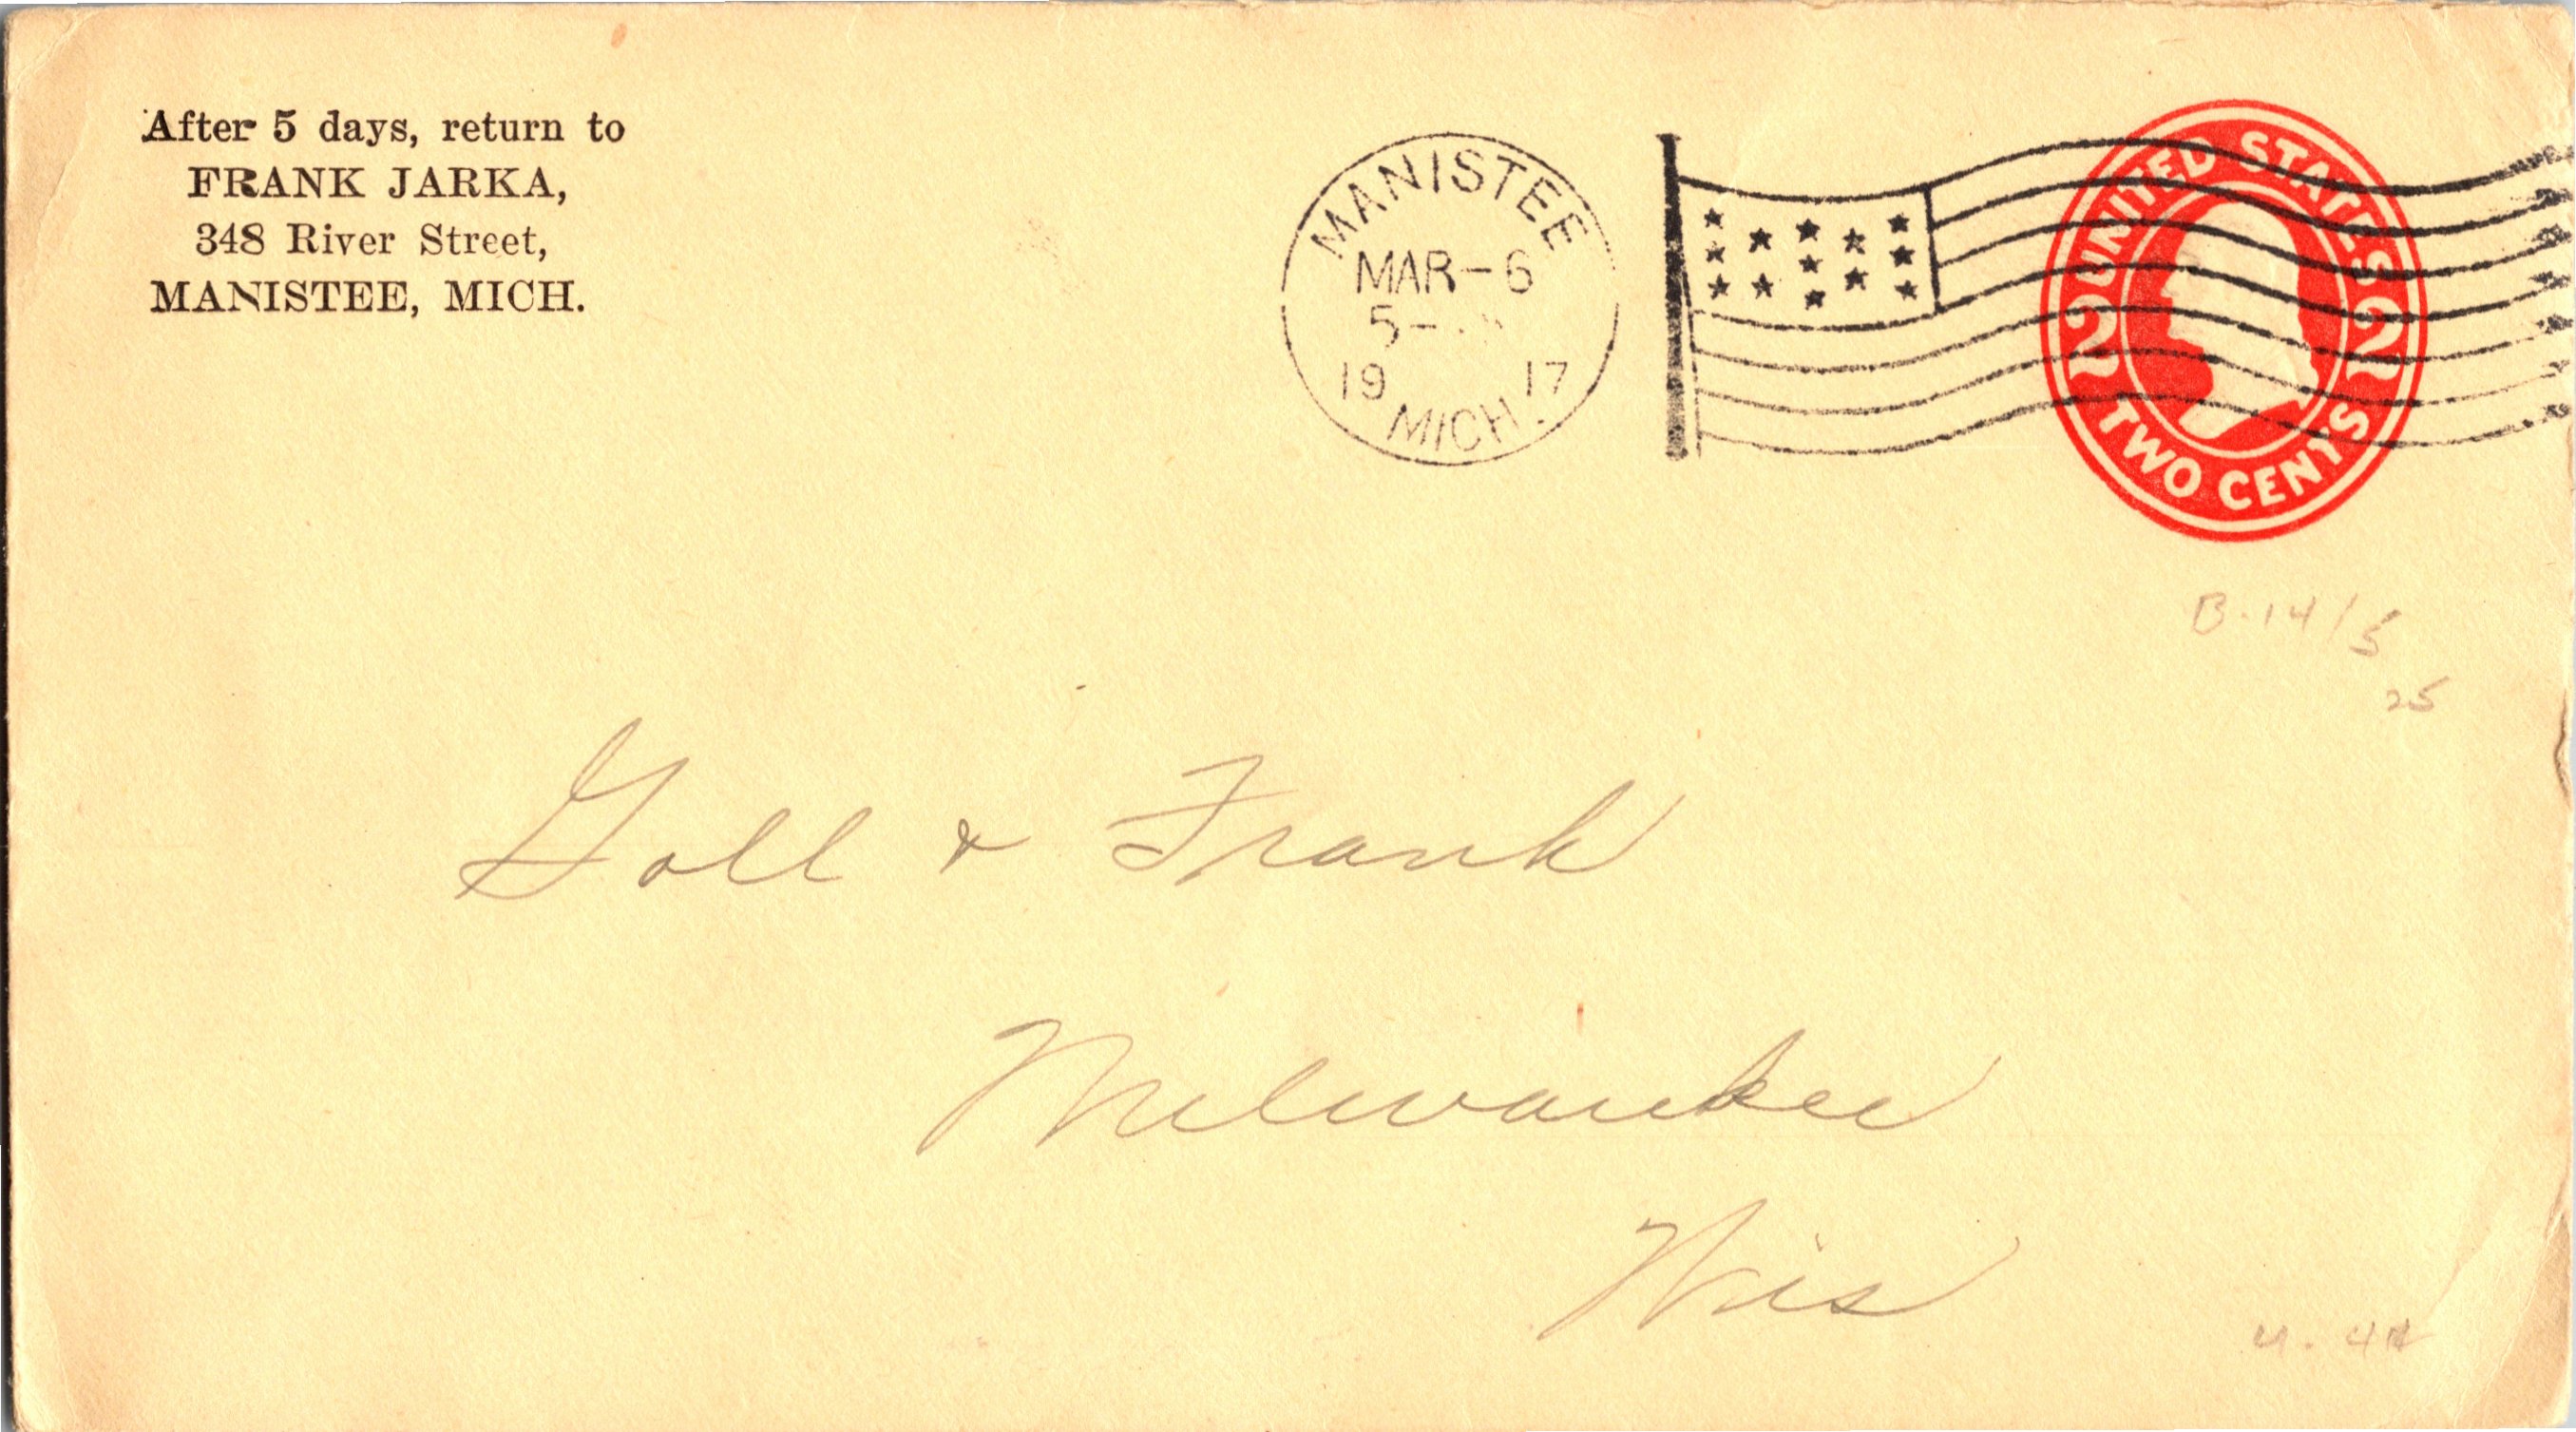 After 5 days, return to
FRANK JARKA,
348 River Street,
MANISTEE, MICH.
MANISTEE
MAR-6
5-
19 17
MICH.
UNITED STATES
2 2
TWO CENTS
B.14/5
25
Goll & Frank
Milwaukee
Wis